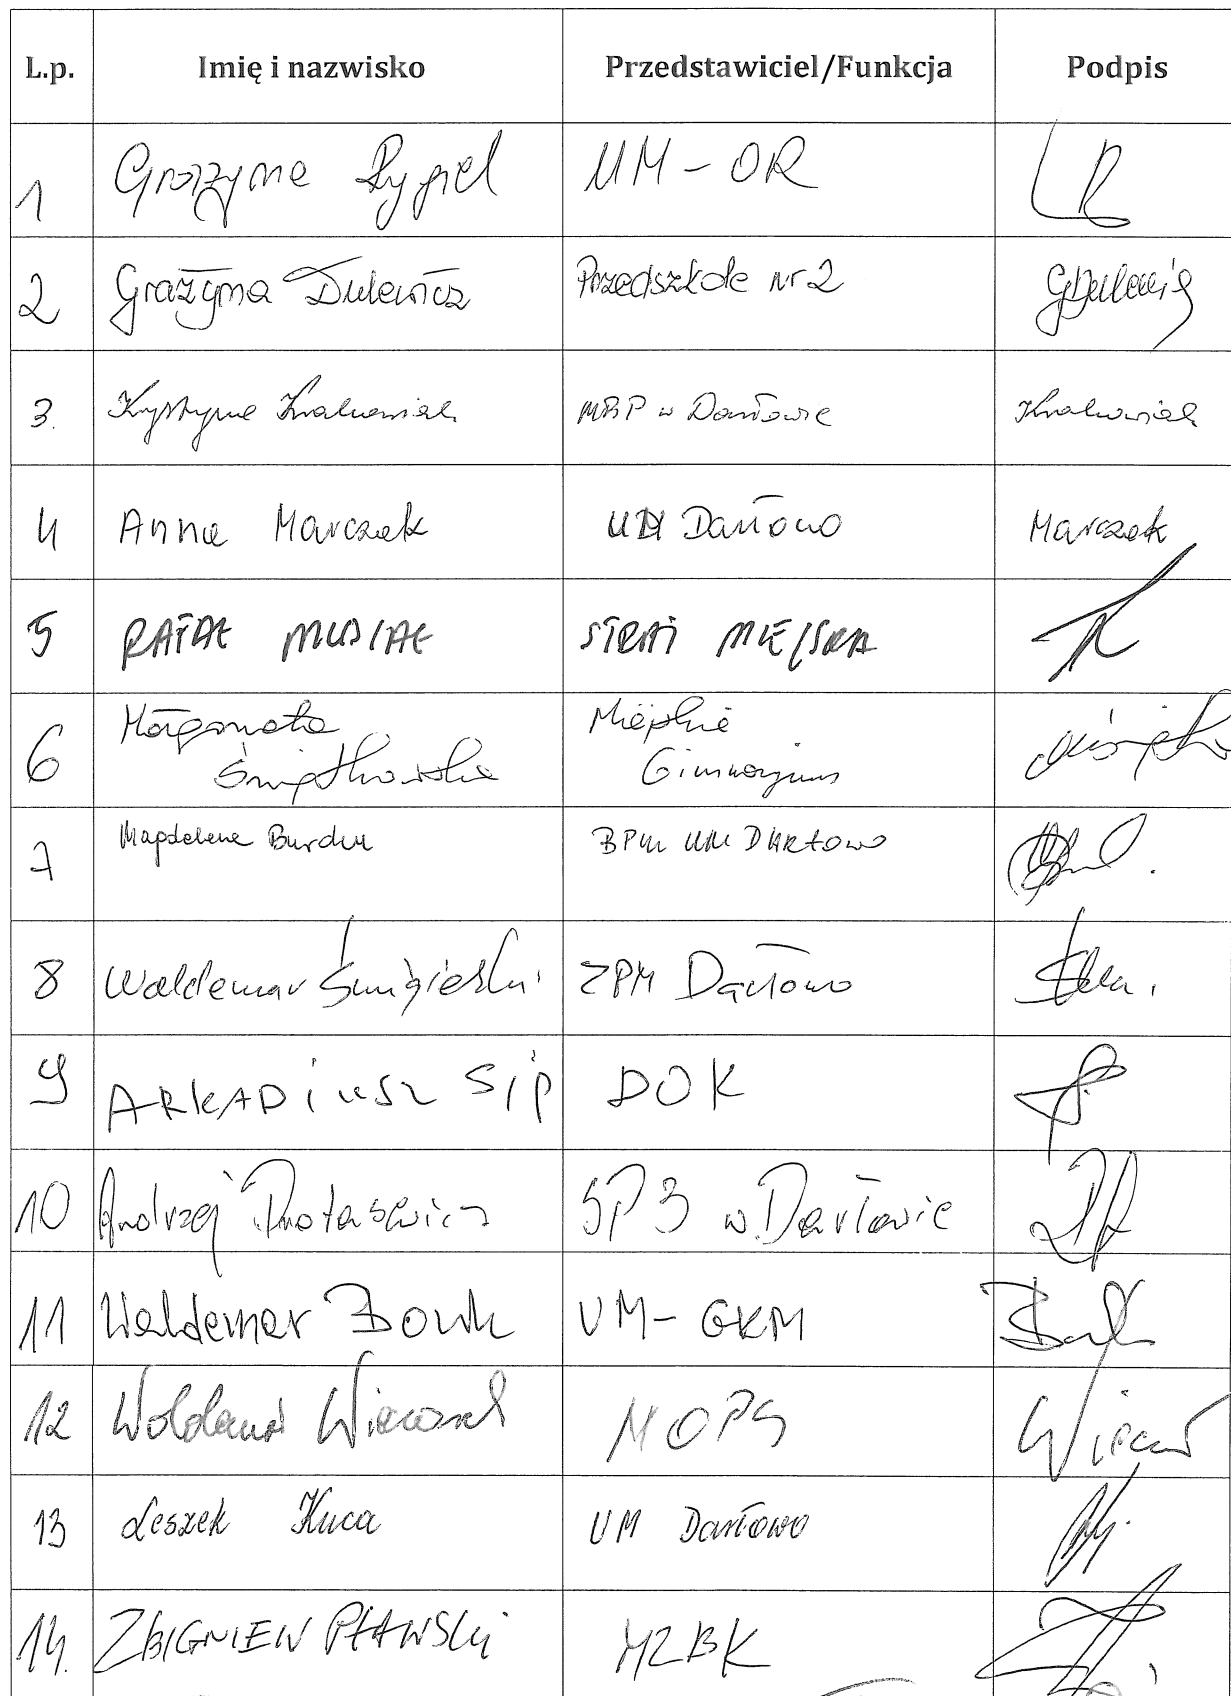 L.p. Imię i nazwisko Przedstawiciel/Funkcja Podpis
1 Grażyna Rypiel UM - OR
2 Grażyna Dulewicz Przedszkole nr 2 GDulewicz
3. Krystyna Krakowiak MBP w Darłowie Krakowiak
4 Anna Marczak UM Darłowo Marczak
5 RAFAŁ MUSIAŁ STRAŻ MIEJSKA
6 Małgorzata Świątkowska Miejskie Gimnazjum
7 Magdalena Burduk BPM UM DARŁOWO
8 Waldemar Śmigielski ZPM Darłowo
9 ARKADiUSZ Sip DOK
10 Andrzej Protasewicz SP 3 w Darłowie
11 Waldemar Bouk UM - GKM
12 MOPS
13 Leszek Kuca UM Darłowo
14. ZBIGNIEW PŁAWSKi MZBK